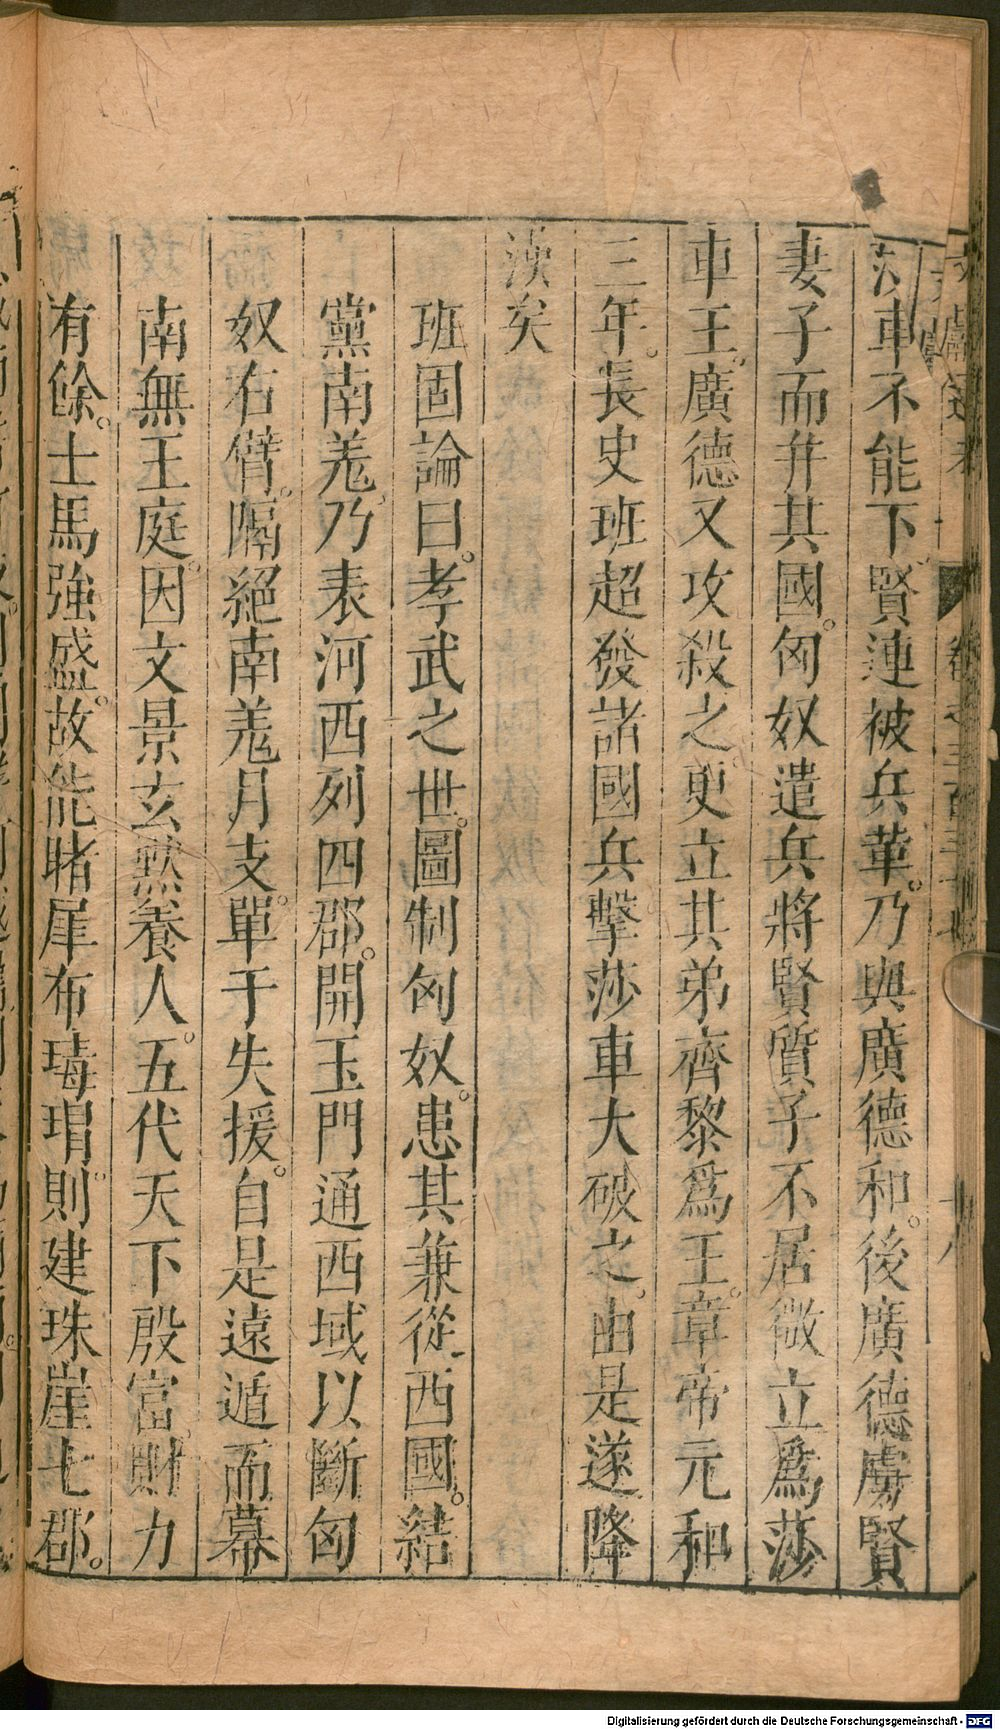 莎車不能下賢連被兵革乃與廣德和後廣德虜賢
妻子而并其國匈奴遣兵將賢質子不居徵立爲莎
車王廣德又攻殺之更立其弟齊黎爲王章帝元和
三年長史班超發諸國兵擊莎車大破之由是遂降
漢矣
班固論曰孝武之世圖制匈奴患其兼從西國結
黨南羗乃表河西列四郡開玉門通西域以斷匈
奴右臂隔絕南羗月支單于失援自是遠遁而幕
南無王庭因文景玄黙養人五代天下殷富財力
有餘士馬強盛故能睹犀布瑇瑁則建珠崖七郡
Digitalisierung gefördert durch die Deutsche Forschungsgemeinschaft - DFG